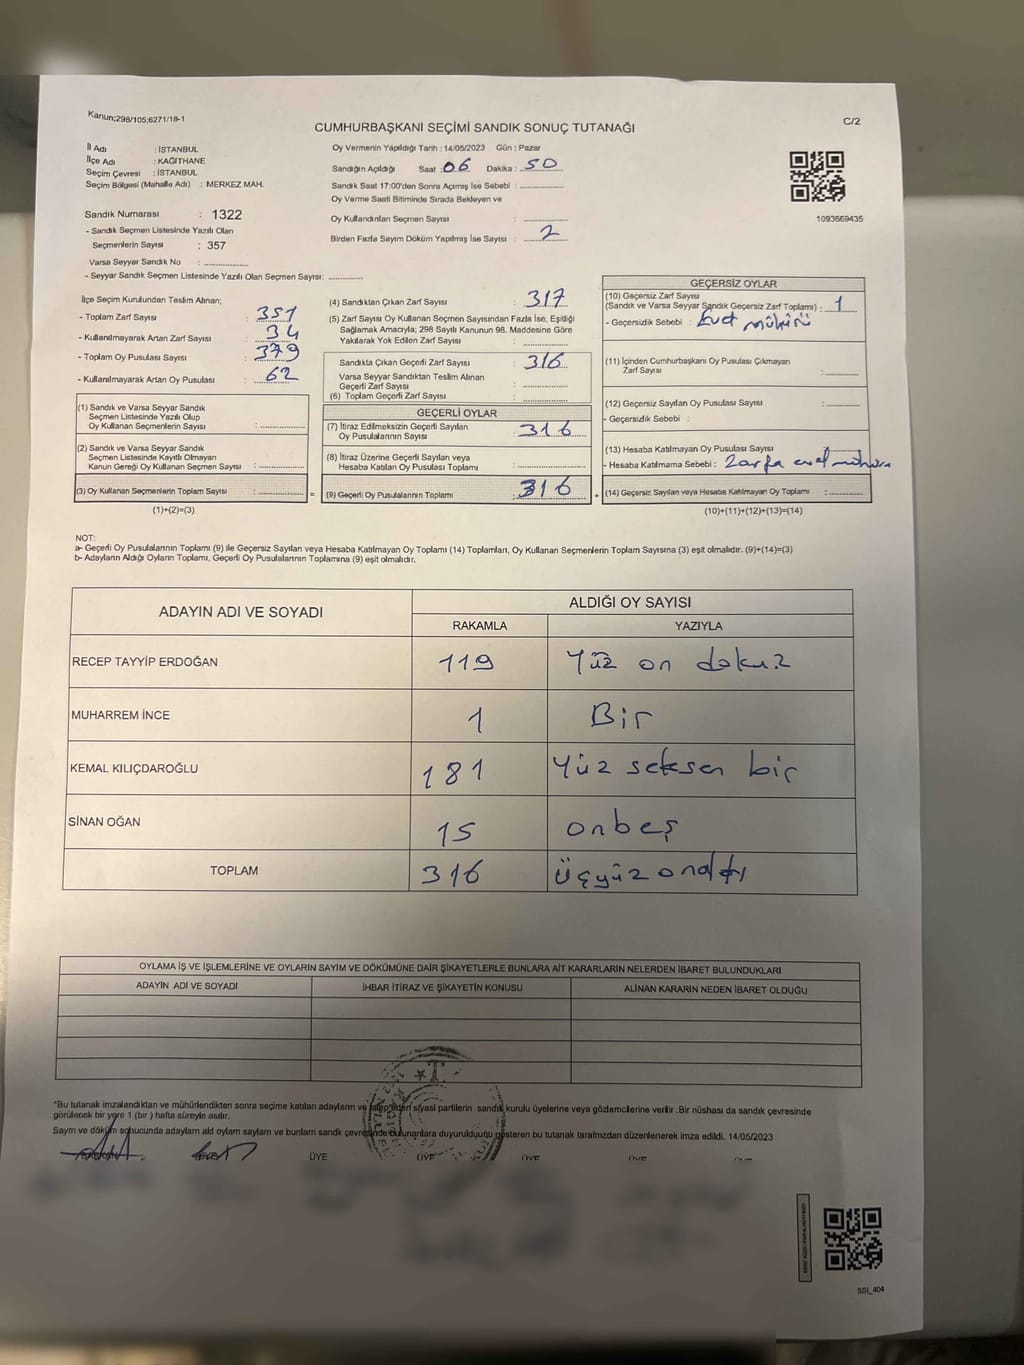 Kanun;298/105;6271/18-1
C/2
CUMHURBAŞKANI SEÇİMİ SANDIK SONUÇ TUTANAĞI
İl Adı : İSTANBUL
İlçe Adı : KAĞITHANE
Seçim Çevresi : İSTANBUL
Seçim Bölgesi (Mahalle Adı) : MERKEZ MAH.
Sandık Numarası : 1322
- Sandık Seçmen Listesinde Yazılı Olan
Seçmenlerin Sayısı : 357
Varsa Seyyar Sandık No :
- Seyyar Sandık Seçmen Listesinde Yazılı Olan Seçmen Sayısı:
Oy Vermenin Yapıldığı Tarih : 14/05/2023 Gün : Pazar
Sandığın Açıldığı Saat : 06 Dakika : 50
Sandık Saat 17:00'den Sonra Açımış İse Sebebi :
Oy Verme Saati Bitiminde Sırada Bekleyen ve
Oy Kullandırılan Seçmen Sayısı :
Birden Fazla Sayım Döküm Yapılmış İse Sayısı : 2
1093669435
İlçe Seçim Kurulundan Teslim Alınan;
- Toplam Zarf Sayısı : 351
- Kullanılmayarak Artan Zarf Sayısı : 34
- Toplam Oy Pusulası Sayısı : 379
- Kullanılmayarak Artan Oy Pusulası : 62
(1) Sandık ve Varsa Seyyar Sandık
Seçmen Listesinde Yazılı Olup
Oy Kullanan Seçmenlerin Sayısı :
(2) Sandık ve Varsa Seyyar Sandık
Seçmen Listesinde Kayıtlı Olmayan
Kanun Gereği Oy Kullanan Seçmen Sayısı :
(3) Oy Kullanan Seçmenlerin Toplam Sayısı :
(1)+(2)=(3)
(4) Sandıktan Çıkan Zarf Sayısı : 317
(5) Zarf Sayısı Oy Kullanan Seçmen Sayısından Fazla İse, Eşitliği
Sağlamak Amacıyla; 298 Sayılı Kanunun 98. Maddesine Göre
Yakılarak Yok Edilen Zarf Sayısı :
Sandıkta Çıkan Geçerli Zarf Sayısı : 316
Varsa Seyyar Sandıktan Teslim Alınan
Geçerli Zarf Sayısı :
(6) Toplam Geçerli Zarf Sayısı :
GEÇERLİ OYLAR
(7) İtiraz Edilmeksizin Geçerli Sayılan
Oy Pusulalarının Sayısı : 316
(8) İtiraz Üzerine Geçerli Sayılan veya
Hesaba Katılan Oy Pusulası Toplamı :
= (9) Geçerli Oy Pusulalarının Toplamı : 316 +
GEÇERSİZ OYLAR
(10) Geçersiz Zarf Sayısı
(Sandık ve Varsa Seyyar Sandık Geçersiz Zarf Toplamı) : 1
- Geçersizlik Sebebi : Evet mührü
(11) İçinden Cumhurbaşkanı Oy Pusulası Çıkmayan
Zarf Sayısı :
(12) Geçersiz Sayılan Oy Pusulası Sayısı :
- Geçersizlik Sebebi :
(13) Hesaba Katılmayan Oy Pusulası Sayısı :
- Hesaba Katılmama Sebebi : Zarfa
(14) Geçersiz Sayılan veya Hesaba Katılmayan Oy Toplamı :
(10)+(11)+(12)+(13)=(14)
NOT:
a- Geçerli Oy Pusulalarının Toplamı (9) ile Geçersiz Sayılan veya Hesaba Katılmayan Oy Toplamı (14) Toplamları, Oy Kullanan Seçmenlerin Toplam Sayısına (3) eşit olmalıdır. (9)+(14)=(3)
b- Adayların Aldığı Oyların Toplamı, Geçerli Oy Pusulalarının Toplamına (9) eşit olmalıdır.
ADAYIN ADI VE SOYADI
ALDIĞI OY SAYISI
RAKAMLA YAZIYLA
RECEP TAYYİP ERDOĞAN 119 Yüz on dokuz
MUHARREM İNCE 1 Bir
KEMAL KILIÇDAROĞLU 181 Yüz seksen bir
SİNAN OĞAN 15 onbeş
TOPLAM 316 Üçyüz onaltı
OYLAMA İŞ VE İŞLEMLERİNE VE OYLARIN SAYIM VE DÖKÜMÜNE DAİR ŞİKAYETLERLE BUNLARA AİT KARARLARIN NELERDEN İBARET BULUNDUKLARI
ADAYIN ADI VE SOYADI İHBAR İTİRAZ VE ŞİKAYETİN KONUSU ALINAN KARARIN NEDEN İBARET OLDUĞU
*Bu tutanak imzalandıktan ve mühürlendikten sonra seçime katılan adayların ve talep eden siyasi partilerin sandık kurulu üyelerine veya gözlemcilerine verilir .Bir nüshası da sandık çevresinde
görülecek bir yere 1 (bir ) hafta süreyle asılır.
Sayım ve döküm sonucunda adayların aldı oyların sayıları ve bunların sandık çevresinde bulunanlara duyurulduğunu gösteren bu tutanak tarafımızdan düzenlenerek imza edildi, 14/05/2023
ÜYE ÜYE ÜYE
SSI_404